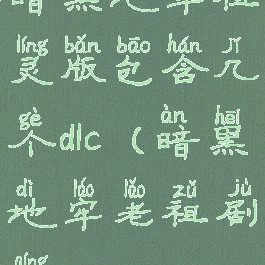 暗黑地牢祖
líng bǎn bāo hán jǐ
灵版包含几
gè àn hēi
个dlc（暗黑
dì láo lǎo zǔ jù
地牢老祖剧